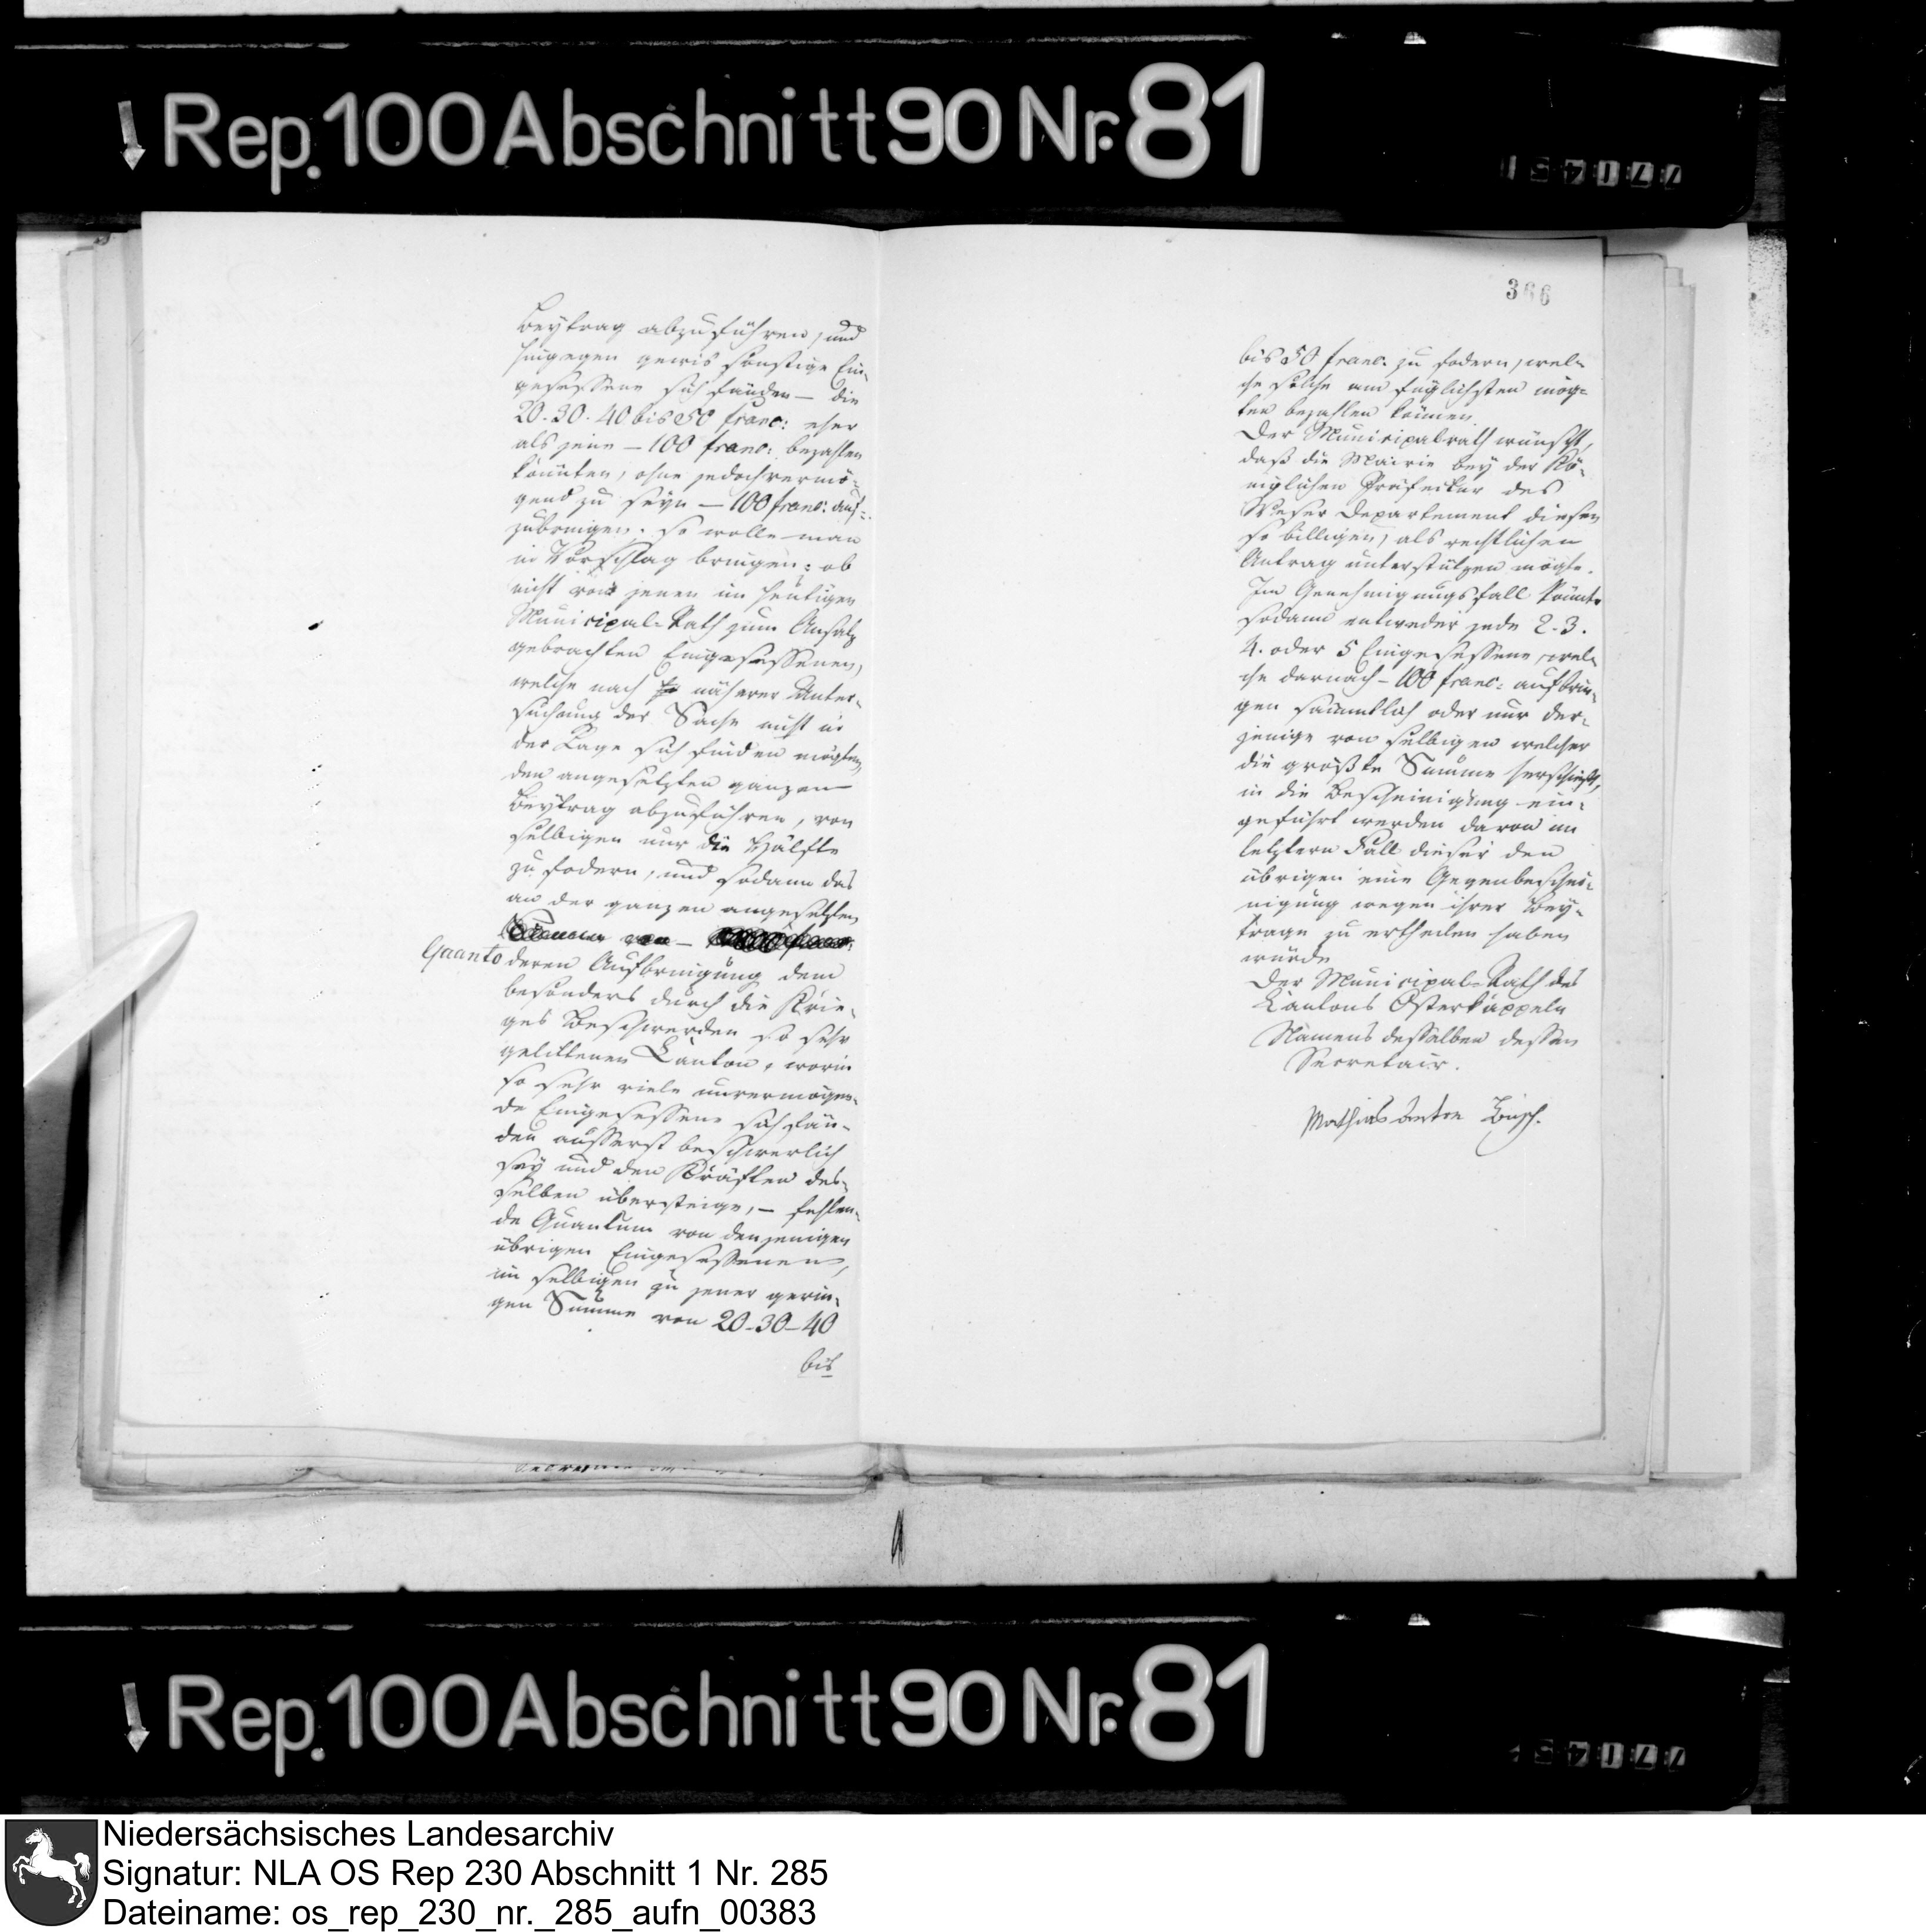 Rep. 100 Abschnitt 90 Nr. 81
Beytrag abzuführen, und
hingegen gewis sonstige Ein-
gesessene sich fänden — die
20. 30. 40 bis 50 franc: eher
als jene — 100 franc: bezahlen
könnten, ohne jedoch vermö-
gend zu seyn — 100 franc: auf-
zubringen. so wolle man
in Vorschlag bringen: ob
nicht von jenen im heutigen
Municipal-Rath zum Ansatz
gebrachten Eingesessenen,
welche nach näherer Unter-
suchung der Sache nicht in
der Lage sich finden mögten,
den angesetzten ganzen
Beytrag abzuführen, von
selbigen nur die Hälfte
zu fodern, und sodann das
an der ganzen angesetzten
Summe von —
Quanto deren Aufbringung dem
besonders durch die Krie-
ges Beschwerden so sehr
gelittenen Canton, worin
so sehr viele unvermögen-
de Eingesessene sich fän-
den äusserst beschwerlich
sey und den Kräften des-
selben übersteige, — fehlen-
de Quantum von denjenigen
übrigen Eingesessenen,
im selbigen zu jener gerin-
gen Summe von 20-30-40
bis
366
bis 50 franc. zu fodern, wel-
che solche am füglichsten mög-
ten bezahlen können.
Der Municipalrath wünscht,
daß die Mairie bey der Kö-
niglichen Präfectur des
Weser Departement diesen
so billigen, als rechtlichen
Antrag unterstützen mögte.
Im Genehmigungsfall könnte
sodann entweder jede 2. 3.
4. oder 5 Eingesessene, wel-
che darnach — 100 franc: aufbrin-
gen sämmtlich oder nur der-
jenige von selbigen welcher
die größte Summe herschießt,
in die Bescheinigung ein-
geführt werden davon im
letztern Fall dieser den
übrigen eine Gegenbeschei-
nigung wegen ihrer Bey-
trage zu ertheilen haben
würde
Der Municipal-Rath des
Cantons Osterkappeln
Namens desselben dessen
Secretair.
Mathias Anton Busch.
Rep. 100 Abschnitt 90 Nr. 81
Niedersächsisches Landesarchiv
Signatur: NLA OS Rep 230 Abschnitt 1 Nr. 285
Dateiname: os_rep_230_nr._285_aufn_00383